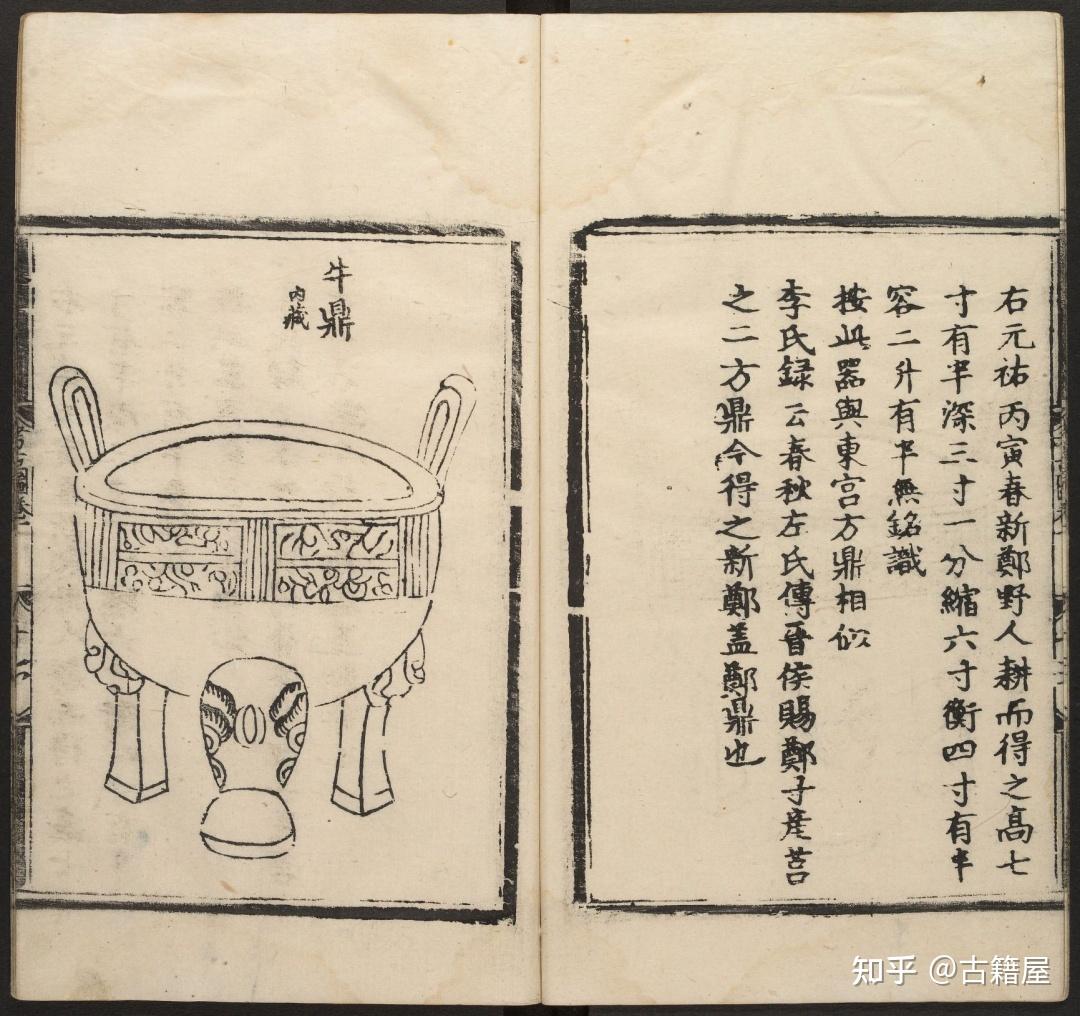 右元祐丙寅春新鄭野人耕而得之高七
寸有半深三寸一分縮六寸衡四寸有半
容二升有半無銘識
按此器與東宮方鼎相似
李氏録云春秋左氏傳晉侯賜鄭子產莒
之二方鼎今得之新鄭蓋鄭鼎也
牛鼎
内藏
知乎 @古籍屋